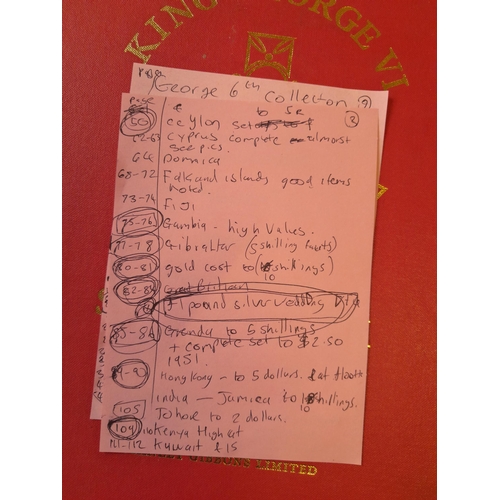 KING GEORGE VI
George 6th Collection
page
to 5R
50 ceylon set
62-63 Cyprus complete almost
see pics.
64 Domnica
68-72 Falkland islands good items
noted.
73-74 FiJi
75-76 Gambia - high values.
77-78 Gibraltar (5 shilling
80-81 gold cost to 10 shillings)
82-84 Great Britian
£1 pound silver wedding
85-86 Grenada to 5 shillings
+ complete set to $2.50
1951.
-90 Hong Kong - to 5 dollars.
india - Jamica to 10 shillings.
105 Johore to 2 dollars.
109 Kenya High cat
111-112 Kuwait £15
GIBBONS LIMITED